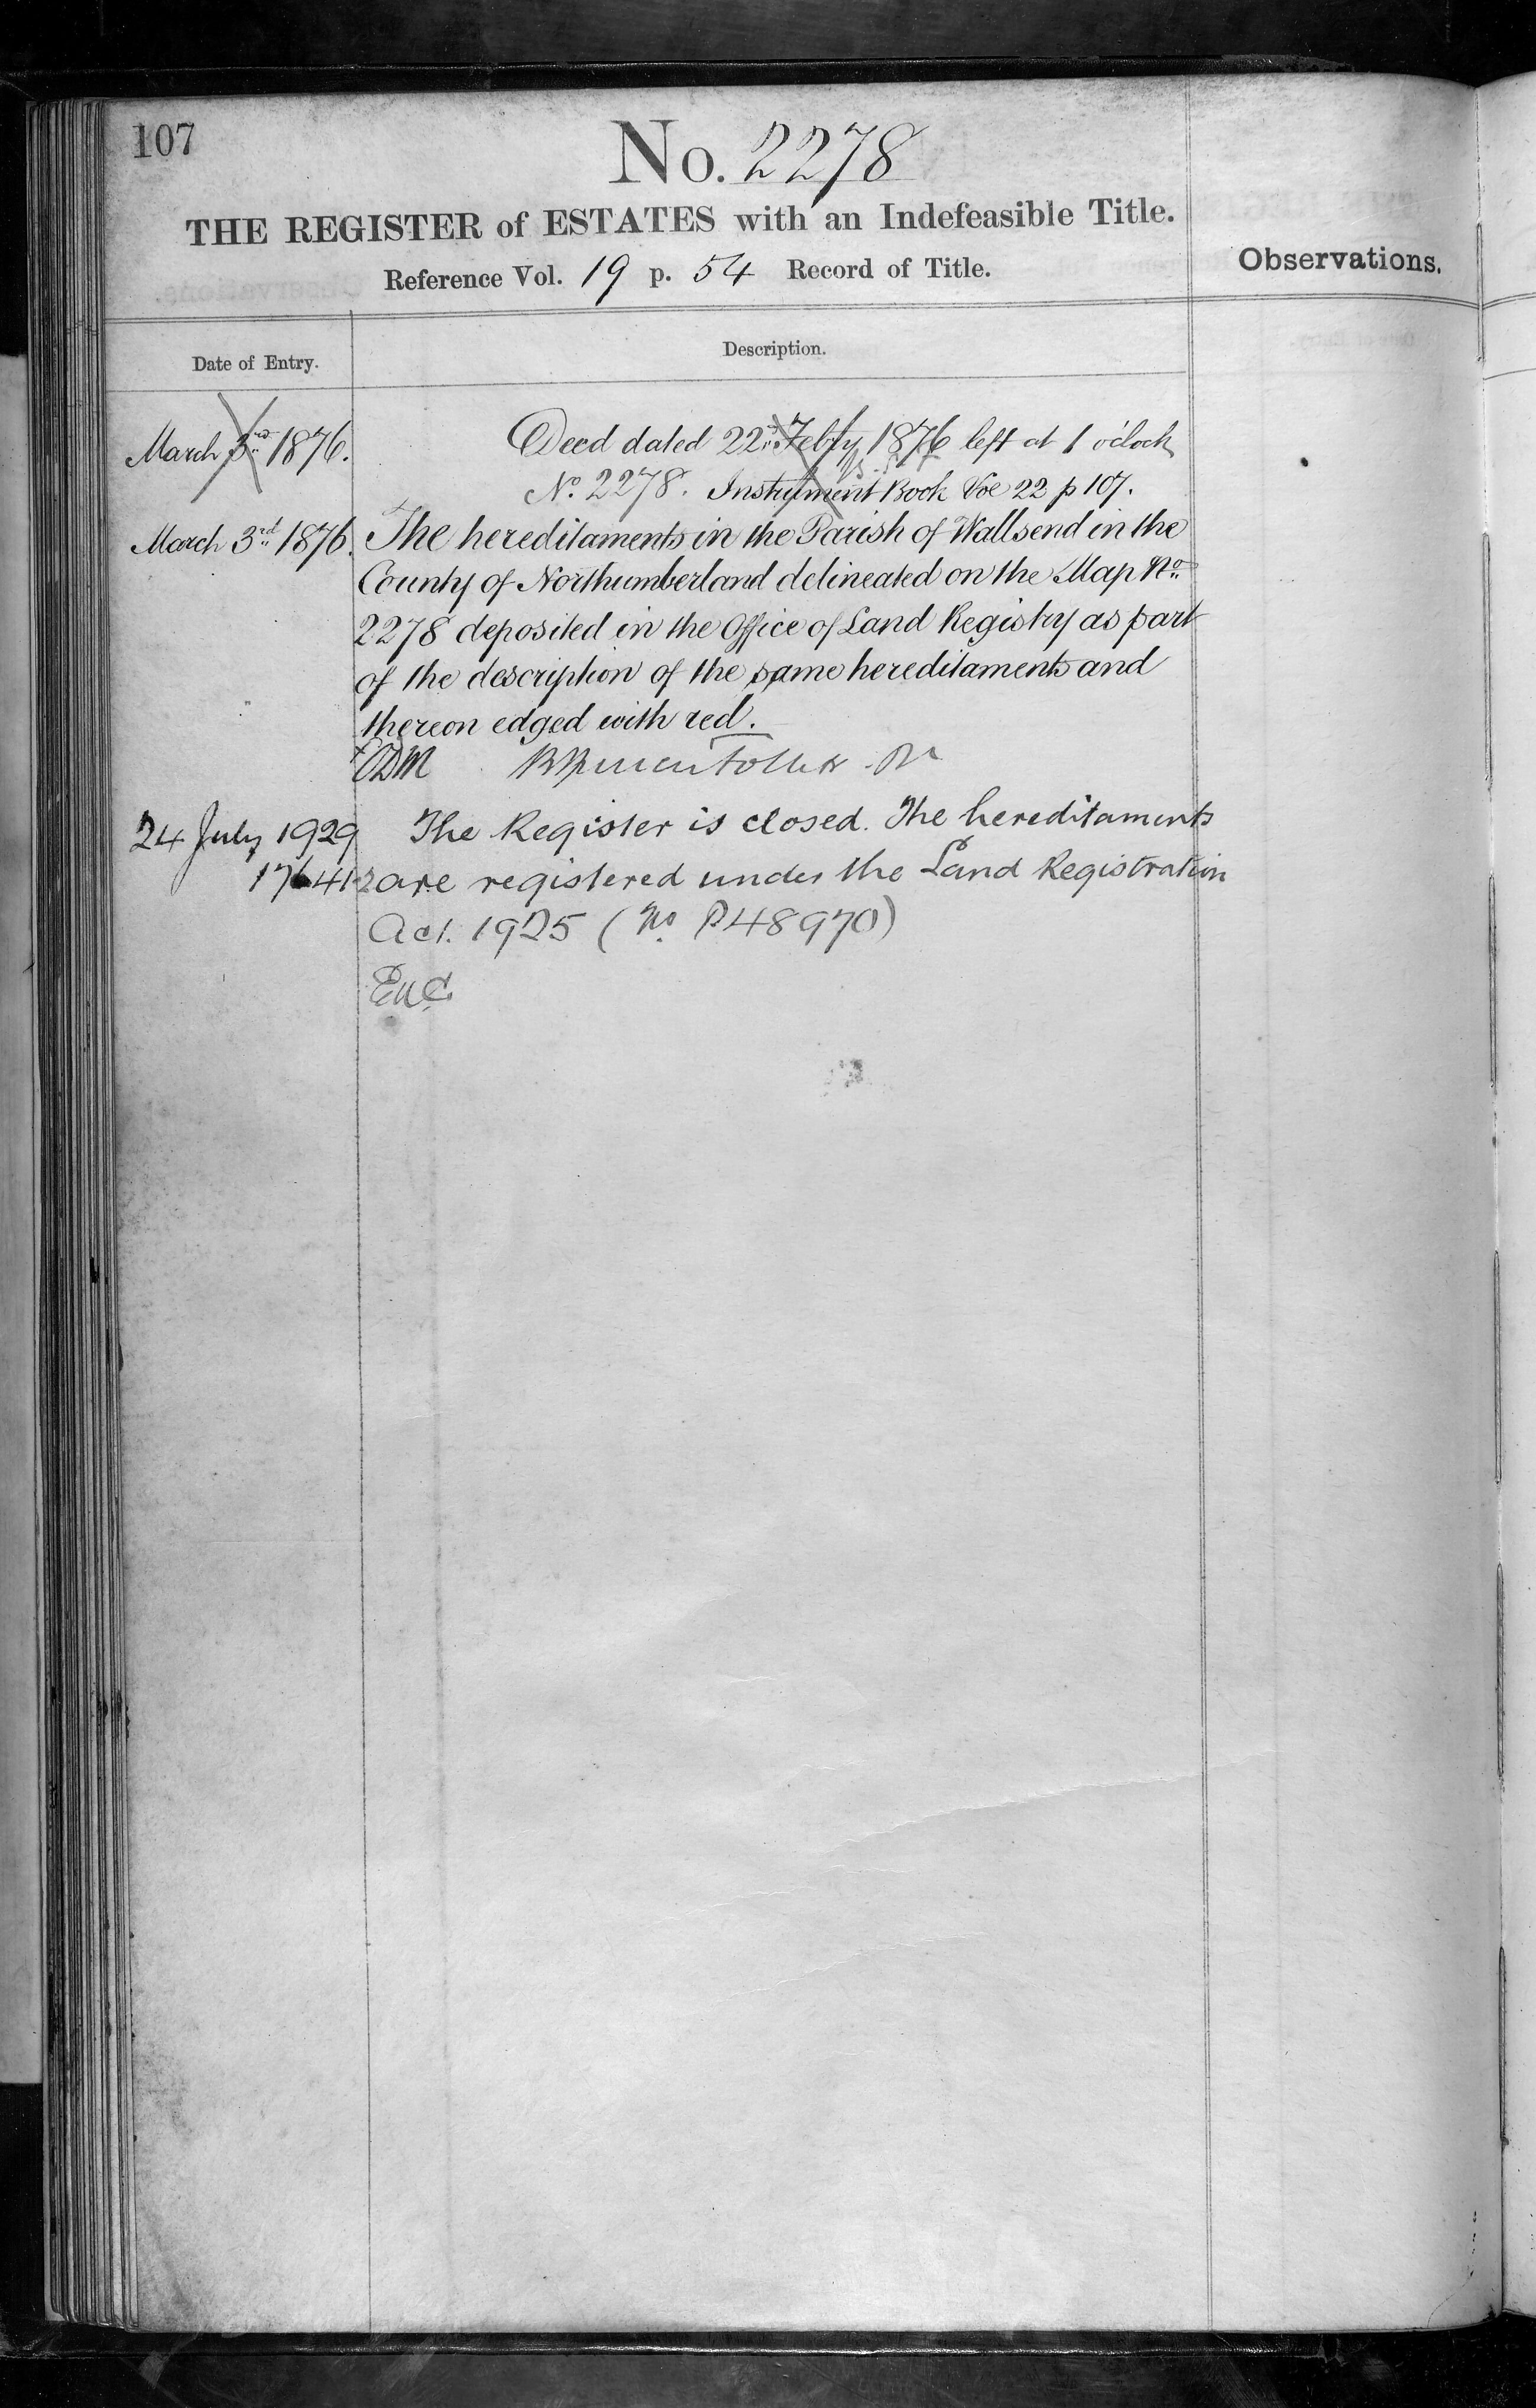 107
No. 2278
THE REGISTER of ESTATES with an Indefeasible Title.
Reference Vol. 19 p. 54 Record of Title.
Observations.
Date of Entry.
Description.
March 3rd 1876.
Deed dated 22nd Feb'y 1876 left at 1 o'clock
No. 2278. Instrument Book Vol 22 p 107.
March 3rd 1876.
The hereditaments in the Parish of Wallsend in the
County of Northumberland delineated on the Map No.
2278 deposited in the Office of Land Registry as part
of the description of the same hereditaments and
thereon edged with red.
24 July 1929
The Register is closed. The hereditaments
are registered under the Land Registration
Act. 1925 (No. P48970)